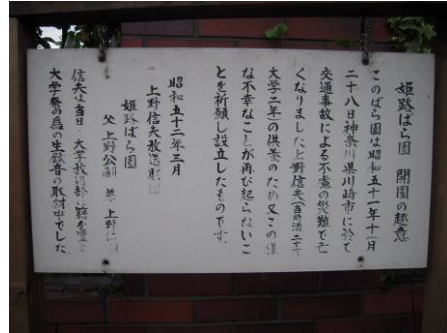 姫路ばら園　開園の趣意
このばら園は昭和五十一年十一月
二十八日神奈川県川崎市に於て
交通事故による不慮の災難で亡
くなりました上野信夫(当時満二十一
大学二年)の供養のため又この様
な不幸なことが再び起らないこ
とを祈願し設立したものです。
昭和五十二年三月
上野信夫放送財団
姫路ばら園
父 上野公嗣
信夫は当日・大学放送部に籍を置き
大学祭の為の生録音の取材中でした